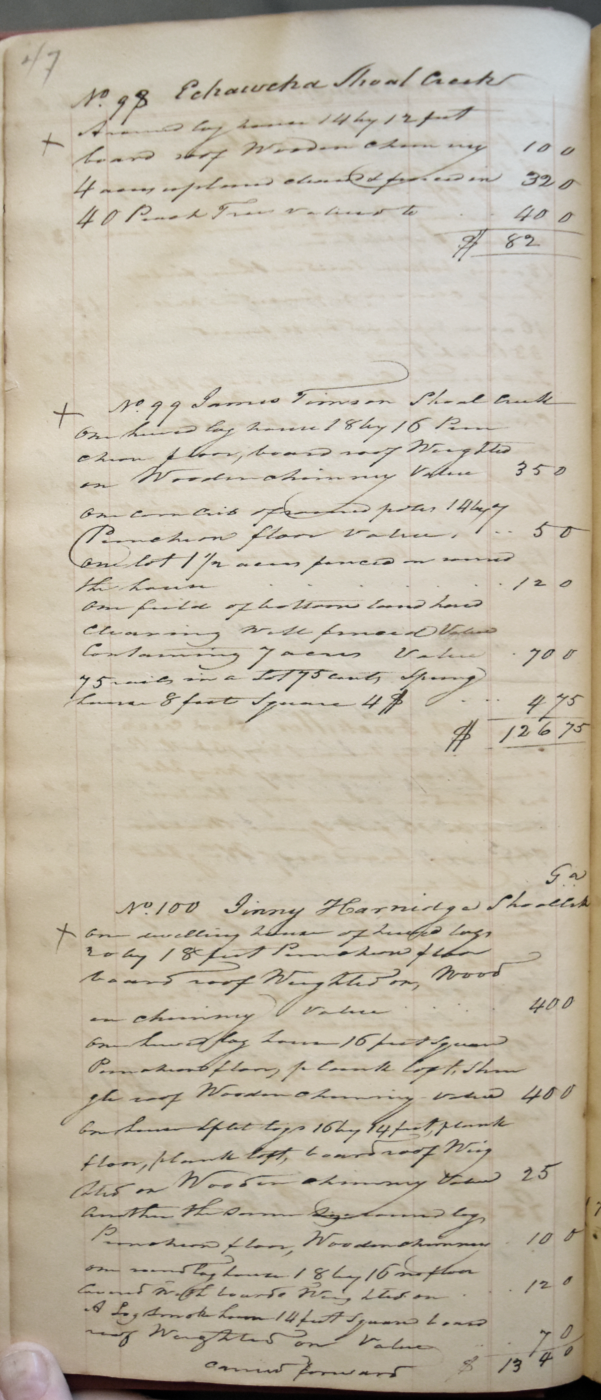 47
No. 98 Echawcka Shoal Creek
+ A round log house 14 by 12 feet
board roof Wooden chimney 10 0
4 acres upland cleared & fenced in 32 0
40 Peach Trees valued to .. 40 0
$ 82
+ No 99 James Timson Shoal Creek
One hewed log house 18 by 16 Pun
cheon floor, board roof Weighted
on Wooden chimney Value 35 0
One corn crib of round poles 14 by 7
Puncheon floor Value. .. 5 0
One lot 1 1/2 acres fenced in round
the house . . . . . 12 0
One field of bottom land hard
clearing well fenced Value
Containing 7 acres Value . 70 0
75 rails in a Lot 75 cents, Spring
house 8 feet Square 4 $ ... 4 75
$ 126 75
Ga
No. 100 Jinny Harnidge Shoal Ck
+ One dwelling house of hewed logs
20 by 18 feet Puncheon floor
board roof Weighted on, Wood
en chimney Value . . . 40 0
One hewed log house 16 feet Square
Puncheon floor, plank loft, Shin
gle roof Wooden chimney value 40 0
One house split logs 16 by 14 feet, plank
floor, plank loft, board roof Weig
hted on Wooden chimney Value 25
Another the same size round logs
Puncheon floor, Wooden chimney . 10 0
One round log house 18 by 16 no floor
covered with boards Weighted on . 12 0
A Log smoke house 14 feet Square board
roof Weighted on Value .. 7 0
carried forward $ 134 0